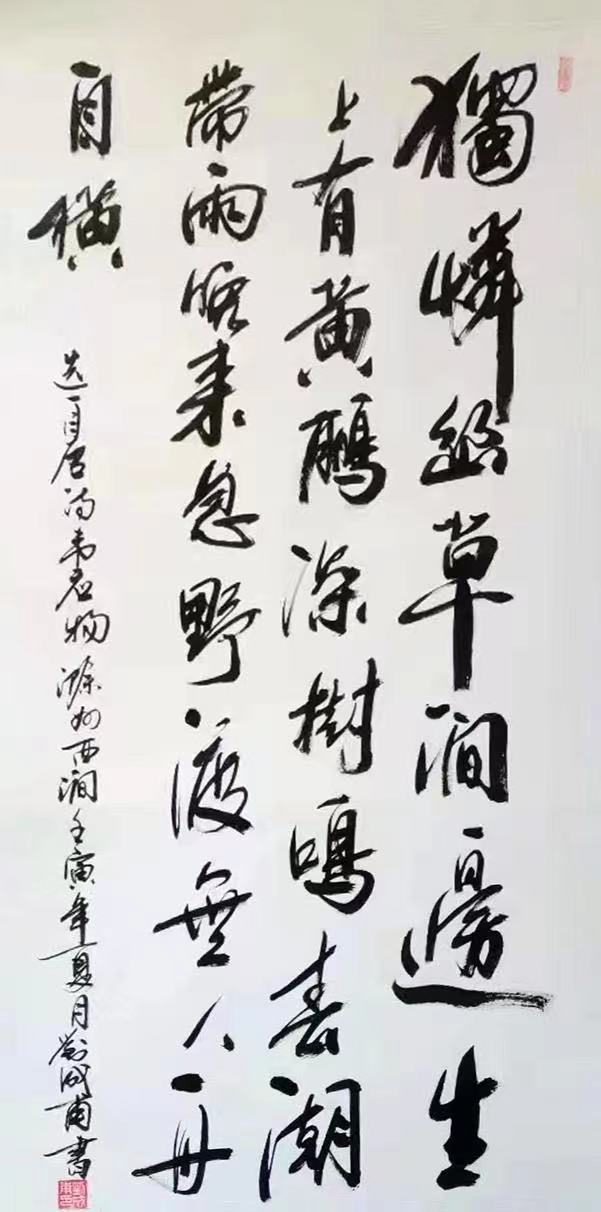 獨憐幽草澗邊生
上有黃鸝深樹鳴春潮
帶雨晚來急野渡無人舟
自橫
选自唐诗韦应物滁州西澗壬寅年夏月劉成甫書